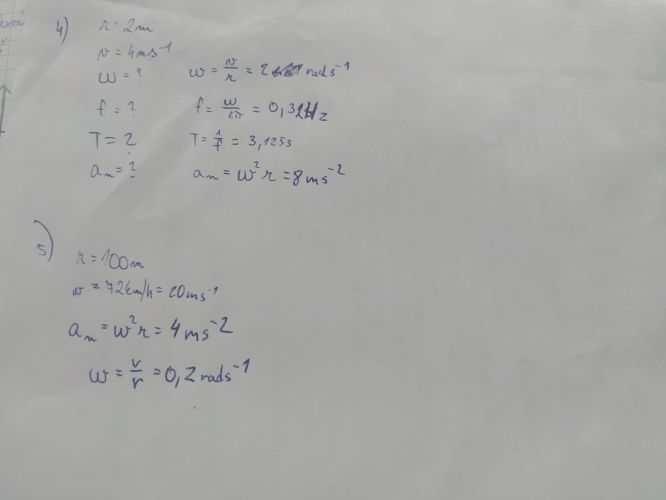 4) r = 2m
v = 4ms⁻¹
ω = ? ω = v/r = 2 rads⁻¹
f = ? f = ω/2π = 0,32Hz
T = ? T = 1/f = 3,125s
aₙ = ? aₙ = ω²r = 8ms⁻²
5) r = 100m
v = 72km/h = 20ms⁻¹
aₙ = ω²r = 4ms⁻²
ω = v/r = 0,2rads⁻¹